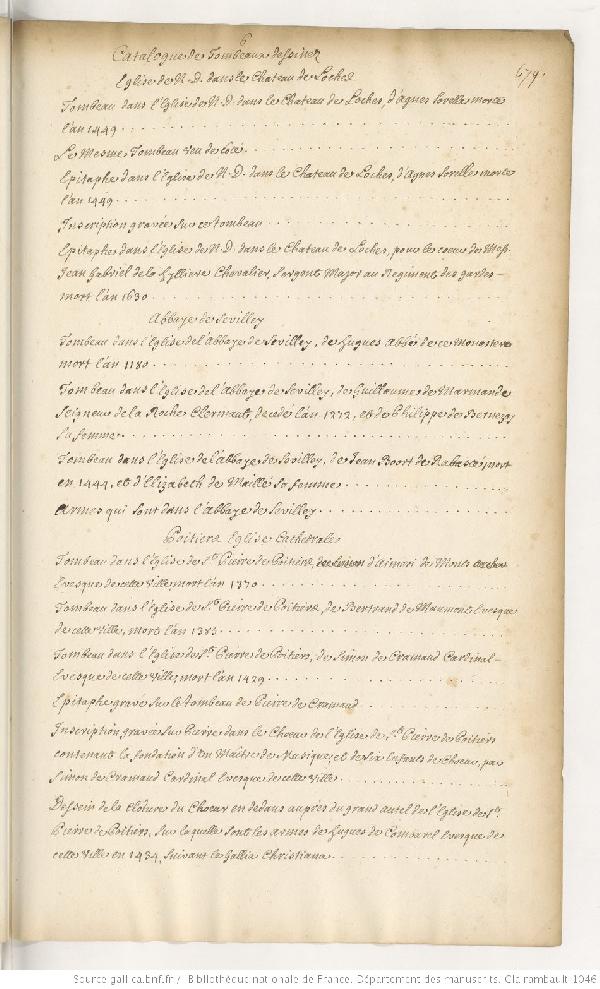 6
Catalogue de Tombeaux dessinez
679.
Eglise de N. D. dans le Chateau de Loches
Tombeau dans l'Eglise de N. D. dans le Chateau de Loches, d'Agnes Sorelle morte
l'an 1449
Le Mesme Tombeau veu de Coté
Epitaphe dans l'Eglise de N. D. dans le Chateau de Loches, d'Agnes Sorelle morte
l'an 1449
Inscription gravée sur ce tombeau
Epitaphe dans l'Eglise de N. D. dans le Chateau de Loches, pour le coeur de Mess.
Jean Gabriel de la Chevalier, Sergent Major au Regiment des gardes
mort l'an 1630
Abbaye de Sevilley
Tombeau dans l'Eglise de l'Abbaye de Sevilley, de Hugues Abbé de ce Monastere
mort l'an 1180
Tombeau dans l'Eglise de l'Abbaye de Sevilley, de Guillaume de Marmande
Seigneur de la Roche Clermault, decede l'an 1272, et de Philippe de
sa femme
Tombeau dans l'Eglise de l'Abbaye de Sevilley, de Jean mort
en 1444, et d'Elizabeth de Maille sa femme
Armes qui sont dans l'Abbaye de Sevilley
Poitiers Eglise Cathedrale
Tombeau dans l'Eglise de St. Pierre de Poitiers, d'Aimeri de Monts
Evesque de cette Ville, mort l'an 1370
Tombeau dans l'Eglise de St. Pierre de Poitiers, de Bertrand de Maumont Evesque
de cette Ville, mort l'an 1385
Tombeau dans l'Eglise de St. Pierre de Poitiers, de Simon de Cramaud Cardinal
Evesque de cette Ville, mort l'an 1429
Epitaphe gravé sur le tombeau de Pierre de Cramaud
Inscription gravée sur Pierre dans le Choeur de l'Eglise de St. Pierre de Poitiers
contenant la fondation d'un Maitre de Musique, et de six Enfants de Choeur, par
Simon de Cramaud Cardinal Evesque de cette Ville
Dessein de la Cloture du Choeur en dedans aupres du grand autel de l'Eglise de St.
Pierre de Poitiers, sur laquelle sont les armes de Hugues de Combarel Evesque de
cette Ville en 1434, suivant le Gallia Christiana
Source gallica.bnf.fr / Bibliothèque nationale de France. Département des manuscrits. Clairambault 1046